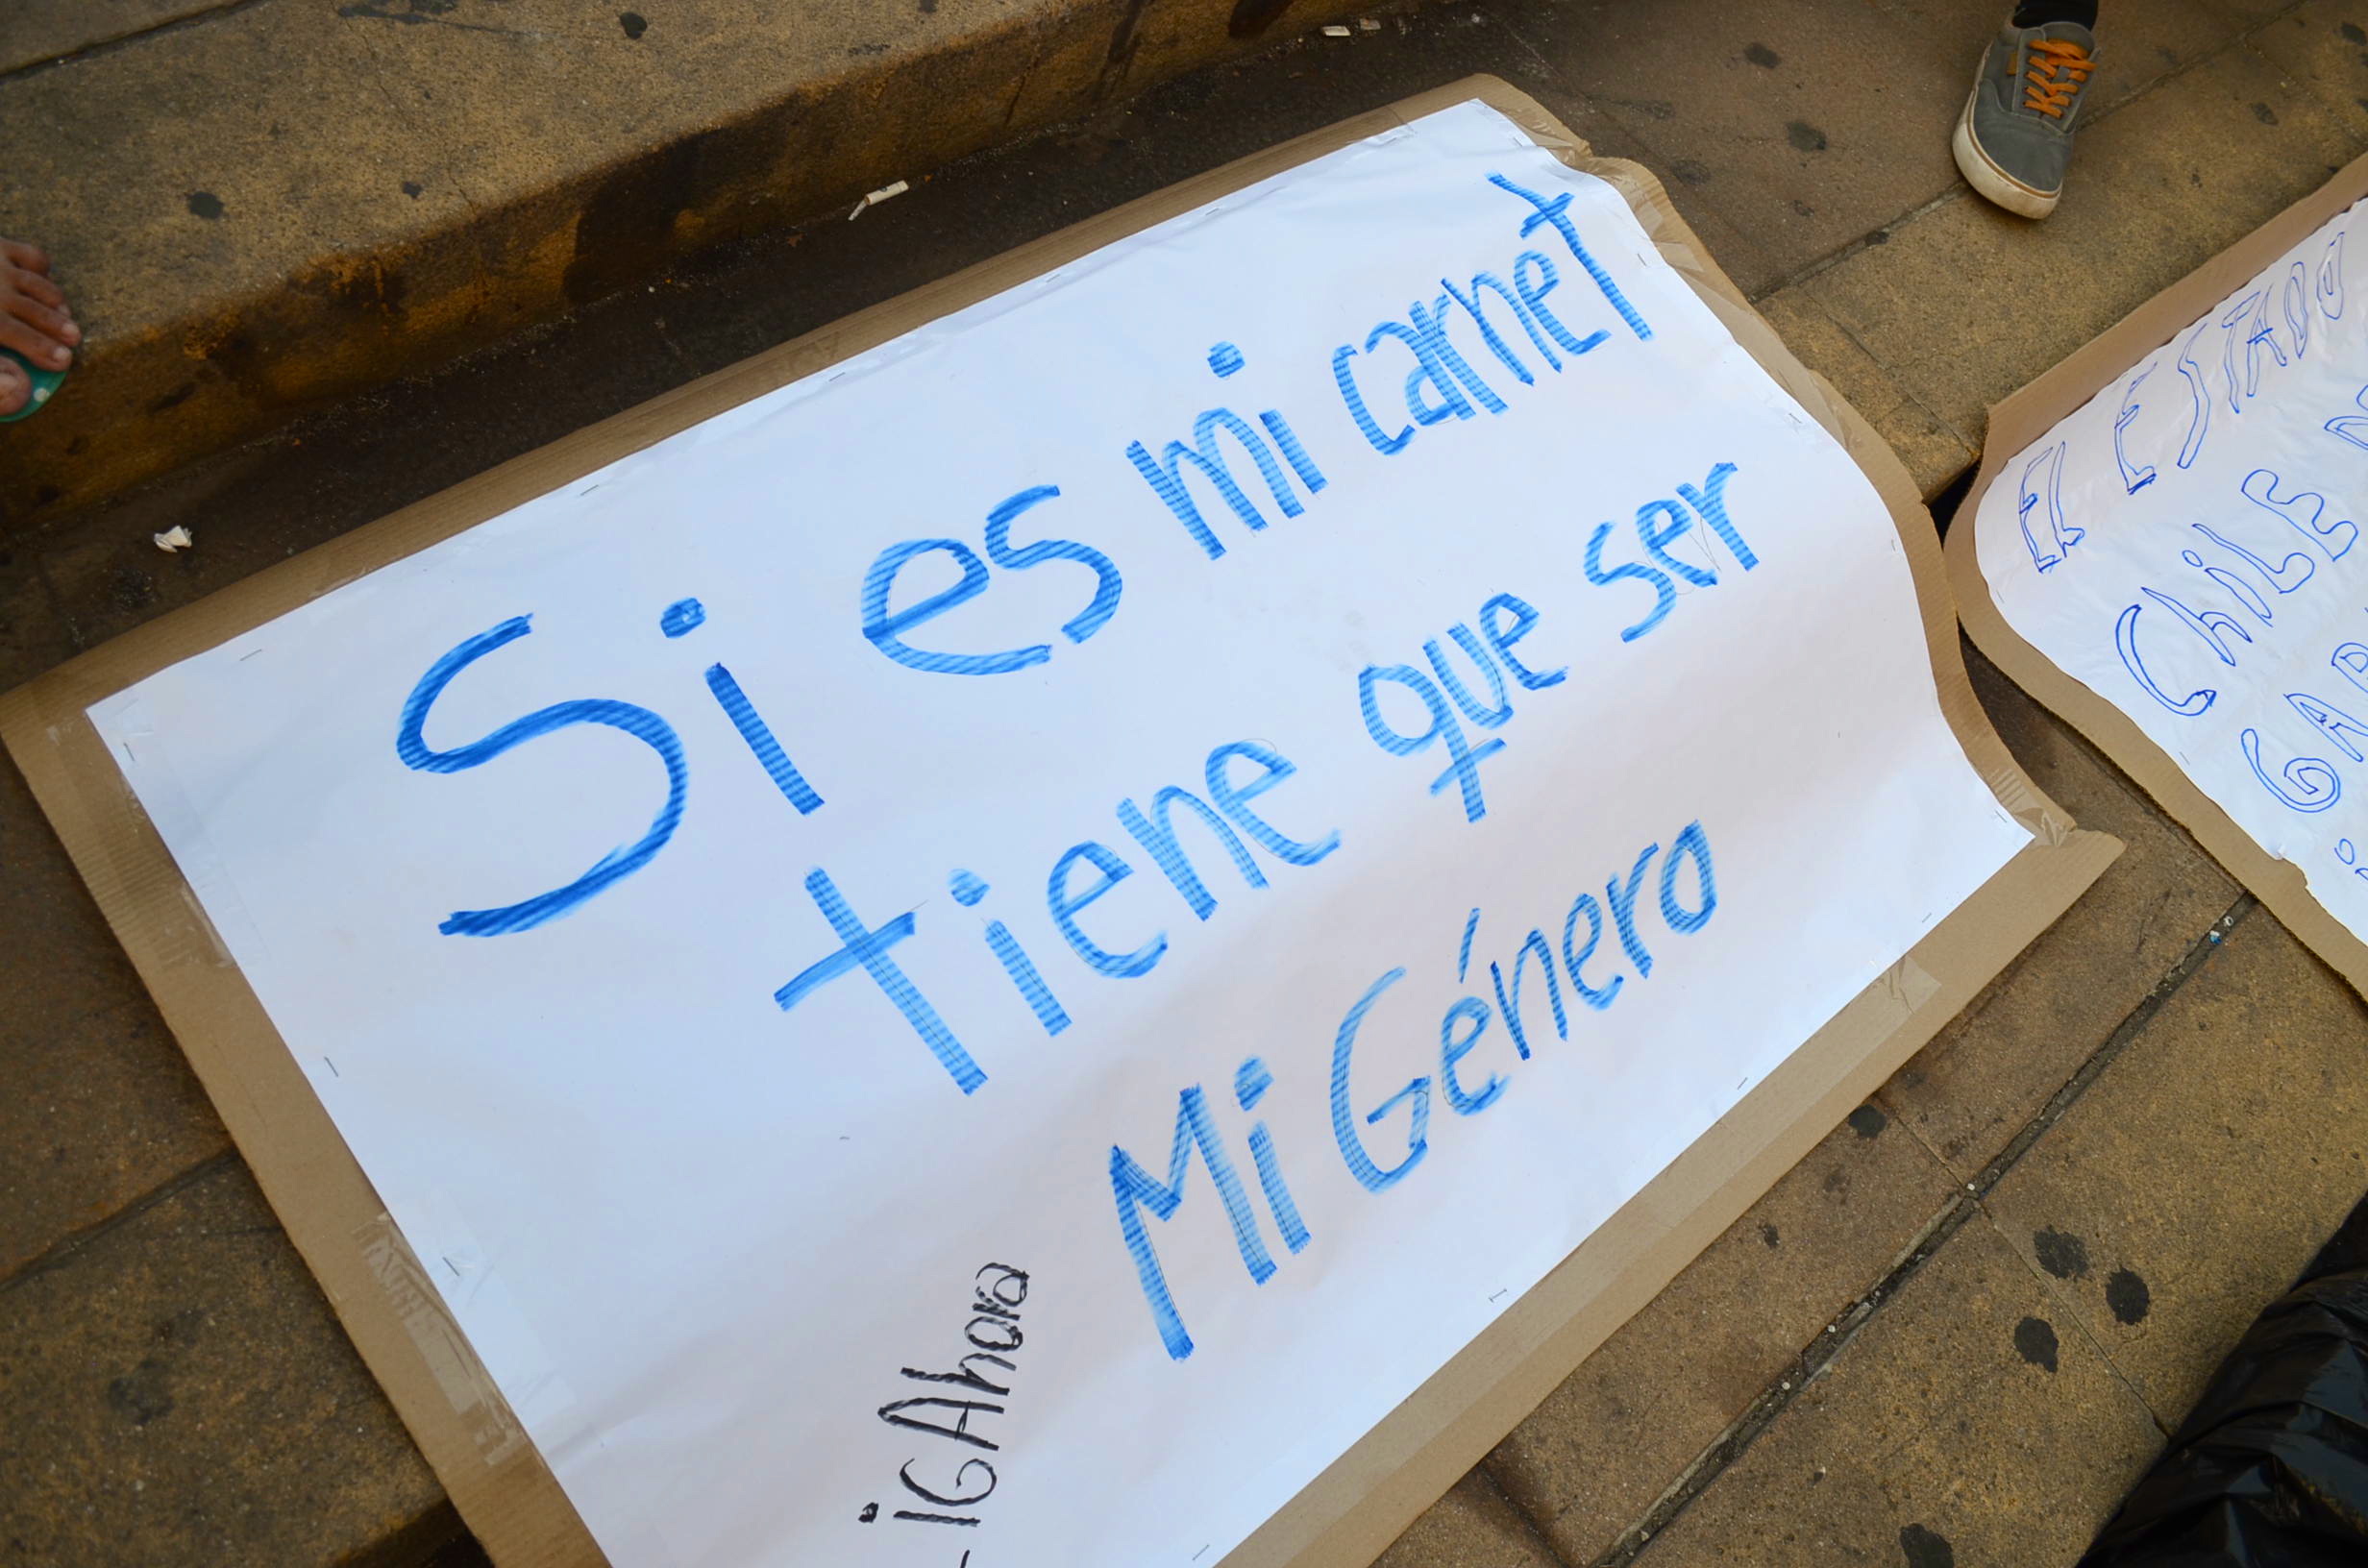 Si es mi carnet
tiene que ser
Mi Género
iGAhora
El ESTADO
ChiLE